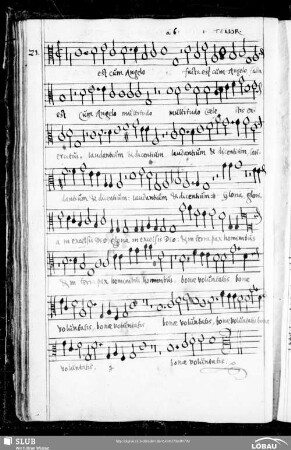 21. a 6. TENOR
est cum Angelo facta est cum Angelo
est cum Angelo multitudo multitudo cæle
exercitus laudantium & dicentium laudantium & dicentium
laudantium & dicentium laudantium & dicentium Gloria, glori
a in excelsis Deo gloria in excelsis Deo. & in terra pax hominibus
& in terra pax hominibus hominibus bonæ voluntatis bonæ
voluntatis, bonæ voluntatis bonæ voluntatis, bonæ voluntatis bonæ
voluntatis. bonæ voluntatis.
SLUB
Wir führen Wissen.
LÖBAU